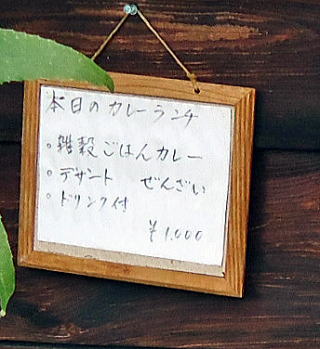 本日のカレーランチ
・雑穀ごはんカレー
・デザート ぜんざい
・ドリンク付
¥1,000